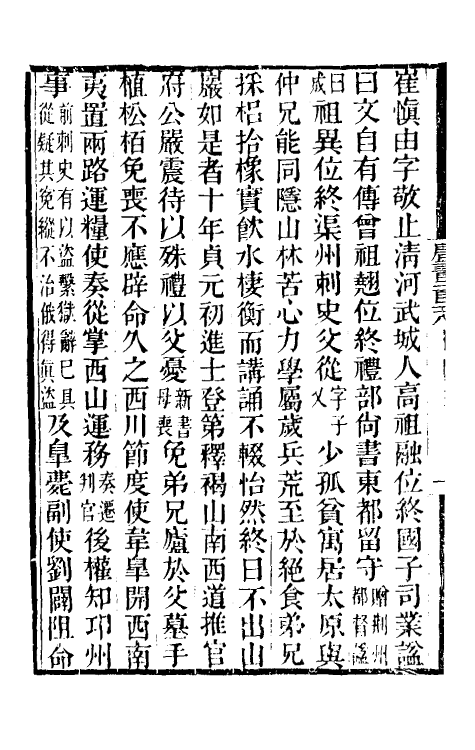 崔慎由字敬止清河武城人高祖融位終國子司業諡
曰文自有傳曾祖翹位終禮部尚書東都留守贈荆州都督諡
曰成祖異位終渠州刺史父從字子乂少孤貧寓居太原與
仲兄能同隱山林苦心力學屬歲兵荒至於絕食弟兄
採梠拾橡實飲水棲衡而講誦不輟怡然終日不出山
巖如是者十年貞元初進士登第釋褐山南西道推官
府公嚴震待以殊禮以父憂新書母喪免弟兄廬於父墓手
植松栢免喪不應辟命久之西川節度使韋皐開西南
夷置兩路運糧使奏從掌西山運務奏遷判官後權知邛州
事前刺史有以盜繫獄辭已具從疑其寃縱不治俄得眞盜及皐薨副使劉闢阻命